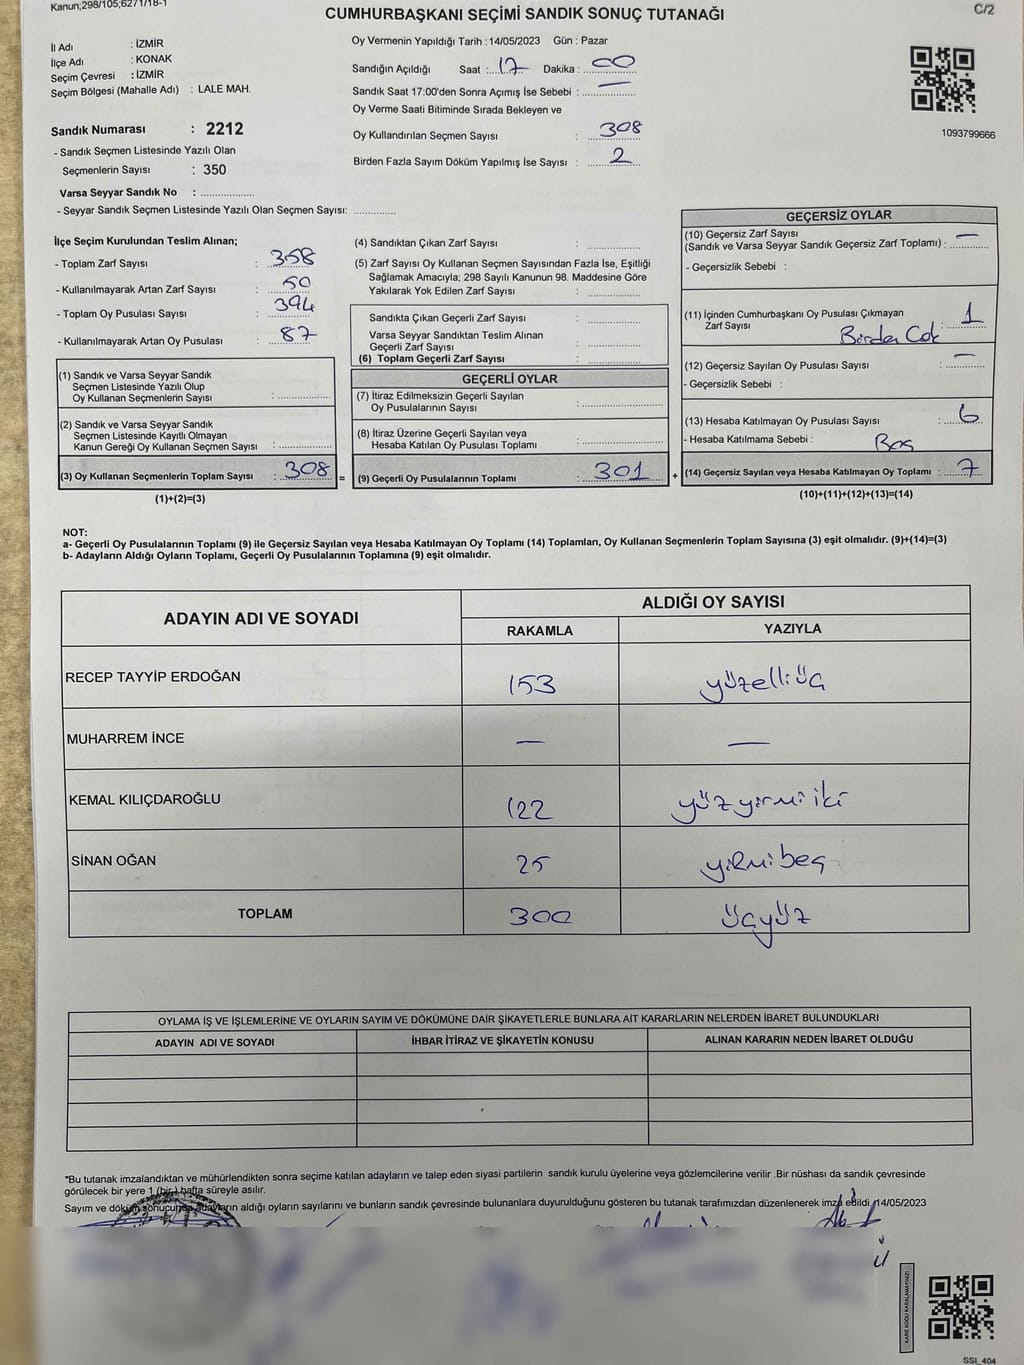 Kanun;298/105;6271/18-1
CUMHURBAŞKANI SEÇİMİ SANDIK SONUÇ TUTANAĞI
C/2
İl Adı : İZMİR
İlçe Adı : KONAK
Seçim Çevresi : İZMİR
Seçim Bölgesi (Mahalle Adı) : LALE MAH.
Sandık Numarası : 2212
- Sandık Seçmen Listesinde Yazılı Olan
Seçmenlerin Sayısı : 350
Varsa Seyyar Sandık No :
- Seyyar Sandık Seçmen Listesinde Yazılı Olan Seçmen Sayısı:
Oy Vermenin Yapıldığı Tarih : 14/05/2023 Gün : Pazar
Sandığın Açıldığı Saat : 17 Dakika : 00
Sandık Saat 17:00'den Sonra Açımış İse Sebebi : —
Oy Verme Saati Bitiminde Sırada Bekleyen ve
Oy Kullandırılan Seçmen Sayısı : 308
Birden Fazla Sayım Döküm Yapılmış İse Sayısı : 2
1093799666
İlçe Seçim Kurulundan Teslim Alınan;
- Toplam Zarf Sayısı : 358
- Kullanılmayarak Artan Zarf Sayısı : 50
- Toplam Oy Pusulası Sayısı : 394
- Kullanılmayarak Artan Oy Pusulası : 87
(1) Sandık ve Varsa Seyyar Sandık
Seçmen Listesinde Yazılı Olup
Oy Kullanan Seçmenlerin Sayısı :
(2) Sandık ve Varsa Seyyar Sandık
Seçmen Listesinde Kayıtlı Olmayan
Kanun Gereği Oy Kullanan Seçmen Sayısı :
(3) Oy Kullanan Seçmenlerin Toplam Sayısı : 308 =
(1)+(2)=(3)
(4) Sandıktan Çıkan Zarf Sayısı :
(5) Zarf Sayısı Oy Kullanan Seçmen Sayısından Fazla İse, Eşitliği
Sağlamak Amacıyla; 298 Sayılı Kanunun 98. Maddesine Göre
Yakılarak Yok Edilen Zarf Sayısı :
Sandıkta Çıkan Geçerli Zarf Sayısı :
Varsa Seyyar Sandıktan Teslim Alınan
Geçerli Zarf Sayısı :
(6) Toplam Geçerli Zarf Sayısı :
GEÇERLİ OYLAR
(7) İtiraz Edilmeksizin Geçerli Sayılan
Oy Pusulalarının Sayısı :
(8) İtiraz Üzerine Geçerli Sayılan veya
Hesaba Katılan Oy Pusulası Toplamı :
(9) Geçerli Oy Pusulalarının Toplamı : 301 +
GEÇERSİZ OYLAR
(10) Geçersiz Zarf Sayısı —
(Sandık ve Varsa Seyyar Sandık Geçersiz Zarf Toplamı) :
- Geçersizlik Sebebi :
(11) İçinden Cumhurbaşkanı Oy Pusulası Çıkmayan
Zarf Sayısı : 1
Birden Çok
(12) Geçersiz Sayılan Oy Pusulası Sayısı : —
- Geçersizlik Sebebi :
(13) Hesaba Katılmayan Oy Pusulası Sayısı : 6
- Hesaba Katılmama Sebebi : Boş
(14) Geçersiz Sayılan veya Hesaba Katılmayan Oy Toplamı : 7
(10)+(11)+(12)+(13)=(14)
NOT:
a- Geçerli Oy Pusulalarının Toplamı (9) ile Geçersiz Sayılan veya Hesaba Katılmayan Oy Toplamı (14) Toplamları, Oy Kullanan Seçmenlerin Toplam Sayısına (3) eşit olmalıdır. (9)+(14)=(3)
b- Adayların Aldığı Oyların Toplamı, Geçerli Oy Pusulalarının Toplamına (9) eşit olmalıdır.
ADAYIN ADI VE SOYADI
ALDIĞI OY SAYISI
RAKAMLA YAZIYLA
RECEP TAYYİP ERDOĞAN 153 yüzelliüç
MUHARREM İNCE — —
KEMAL KILIÇDAROĞLU 122 yüzyirmiiki
SİNAN OĞAN 25 yirmibeş
TOPLAM 300 üçyüz
OYLAMA İŞ VE İŞLEMLERİNE VE OYLARIN SAYIM VE DÖKÜMÜNE DAİR ŞİKAYETLERLE BUNLARA AİT KARARLARIN NELERDEN İBARET BULUNDUKLARI
ADAYIN ADI VE SOYADI İHBAR İTİRAZ VE ŞİKAYETİN KONUSU ALINAN KARARIN NEDEN İBARET OLDUĞU
*Bu tutanak imzalandıktan ve mühürlendikten sonra seçime katılan adayların ve talep eden siyasi partilerin sandık kurulu üyelerine veya gözlemcilerine verilir .Bir nüshası da sandık çevresinde
görülecek bir yere 1 (bir ) hafta süreyle asılır.
Sayım ve döküm sonucunda adayların aldığı oyların sayılarını ve bunların sandık çevresinde bulunanlara duyurulduğunu gösteren bu tutanak tarafımızdan düzenlenerek imza edildi. 14/05/2023
KARE KODU KARALAMAYINIZ!
SSI_404